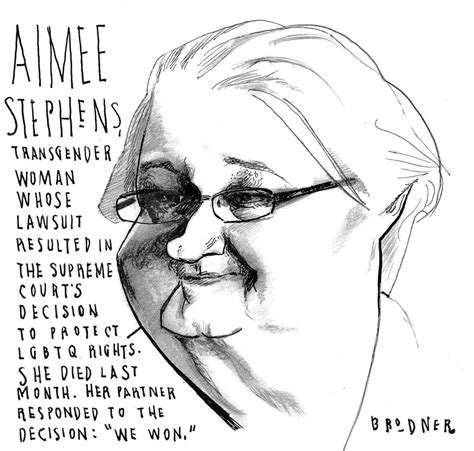 AIMEE
STEPHENS,
TRANSGENDER
WOMAN
WHOSE
LAWSUIT
RESULTED IN
THE SUPREME
COURT'S
DECISION
TO PROTECT
LGBTQ RIGHTS.
SHE DIED LAST
MONTH. HER PARTNER
RESPONDED TO THE
DECISION: "WE WON."
BRODNER